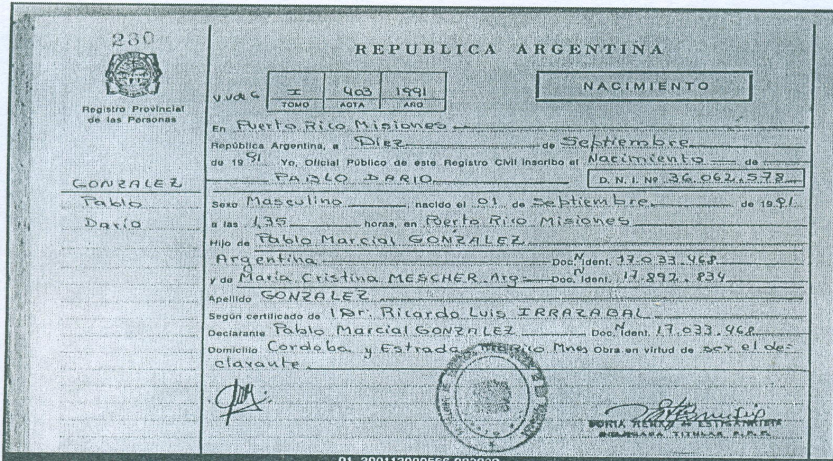 230
Registro Provincial
de las Personas
GONZALEZ
Pablo
Darío
REPUBLICA ARGENTINA
I 403 1991
TOMO ACTA AÑO
NACIMIENTO
En Puerto Rico Misiones
República Argentina, a Diez de Septiembre
de 1991 Yo, Oficial Público de este Registro Civil inscribo el Nacimiento de
PABLO DARIO D. N. I. Nº 36.062.578
Sexo Masculino nacido el 01 de Septiembre de 1991
a las 1,35 horas, en Puerto Rico Misiones
Hijo de Pablo Marcial GONZALEZ
Argentina Doc. N Ident. 17.033.468
y de María Cristina MESCHER Arg Doc. N Ident. 17.892.834
Apellido GONZALEZ
Según certificado de Dr. Ricardo Luis IRRAZABAL
Declarante Pablo Marcial GONZALEZ Doc. N Ident. 17.033.468
Domicilio Cordoba y Estrada Mnes Obra en virtud de ser el de=
clarante